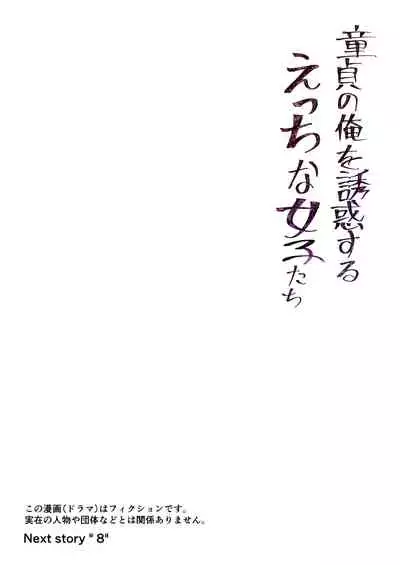 童貞の俺を誘惑する
えっちな女子たち
この漫画(ドラマ)はフィクションです。
実在の人物や団体などとは関係ありません。
Next story " 8"